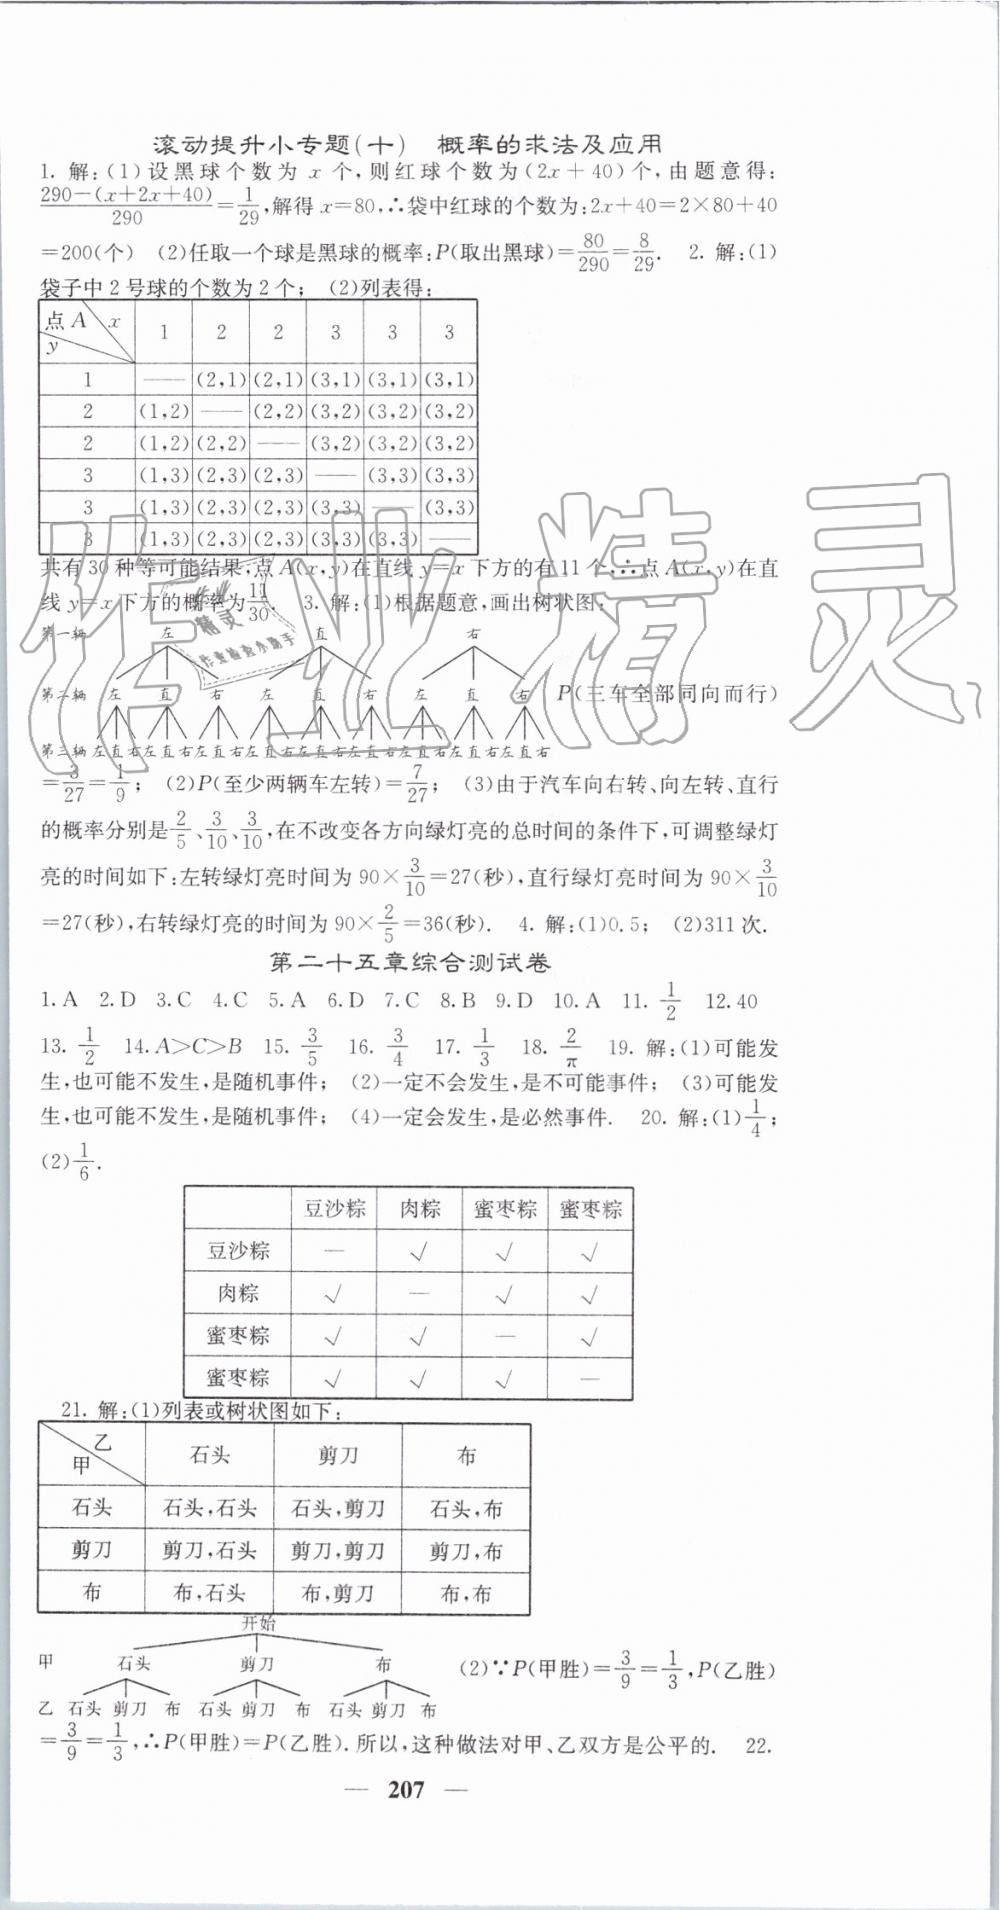 滚动提升小专题(十)　概率的求法及应用
1. 解:(1)设黑球个数为 x 个,则红球个数为(2x+40)个,由题意得:
(290-(x+2x+40))/290=1/29,解得 x=80,∴袋中红球的个数为:2x+40=2×80+40
=200(个)　(2)任取一个球是黑球的概率:P(取出黑球)=80/290=8/29.　2. 解:(1)
袋子中 2 号球的个数为 2 个;　(2)列表得:
点 A　x　y　1　2　2　3　3　3
1　——　(2,1)　(2,1)　(3,1)　(3,1)　(3,1)
2　(1,2)　——　(2,2)　(3,2)　(3,2)　(3,2)
2　(1,2)　(2,2)　——　(3,2)　(3,2)　(3,2)
3　(1,3)　(2,3)　(2,3)　——　(3,3)　(3,3)
3　(1,3)　(2,3)　(2,3)　(3,3)　——　(3,3)
3　(1,3)　(2,3)　(2,3)　(3,3)　(3,3)　——
共有 30 种等可能结果,点 A(x,y)在直线 y=x 下方的有 11 个,∴点 A(x,y)在直
线 y=x 下方的概率为11/30.　3. 解:(1)根据题意,画出树状图:
第一辆　左　直　右
第二辆　左　直　右　左　直　右　左　直　右　P(三车全部同向而行)
第三辆　左直右左直右左直右左直右左直右左直右左直右左直右左直右
=3/27=1/9;　(2)P(至少两辆车左转)=7/27;　(3)由于汽车向右转、向左转、直行
的概率分别是2/5、3/10、3/10,在不改变各方向绿灯亮的总时间的条件下,可调整绿灯
亮的时间如下:左转绿灯亮时间为 90×3/10=27(秒),直行绿灯亮时间为 90×3/10
=27(秒),右转绿灯亮的时间为 90×2/5=36(秒).　4. 解:(1)0.5;　(2)311 次.
第二十五章综合测试卷
1. A　2. D　3. C　4. C　5. A　6. D　7. C　8. B　9. D　10. A　11. 1/2　12. 40
13. 1/2　14. A>C>B　15. 3/5　16. 3/4　17. 1/3　18. 2/π　19. 解:(1)可能发
生,也可能不发生,是随机事件;　(2)一定不会发生,是不可能事件;　(3)可能发
生,也可能不发生,是随机事件;　(4)一定会发生,是必然事件.　20. 解:(1)1/4;
(2)1/6.
豆沙粽　肉粽　蜜枣粽　蜜枣粽
豆沙粽　—　√　√　√
肉粽　√　—　√　√
蜜枣粽　√　√　—　√
蜜枣粽　√　√　√　—
21. 解:(1)列表或树状图如下:
乙　甲　石头　剪刀　布
石头　石头,石头　石头,剪刀　石头,布
剪刀　剪刀,石头　剪刀,剪刀　剪刀,布
布　布,石头　布,剪刀　布,布
开始
甲　石头　剪刀　布　(2)∵P(甲胜)=3/9=1/3,P(乙胜)
乙　石头　剪刀　布　石头　剪刀　布　石头　剪刀　布
=3/9=1/3,∴P(甲胜)=P(乙胜).所以,这种做法对甲、乙双方是公平的.　22.
— 207 —
作业精灵
作业
精灵
作业检查小助手